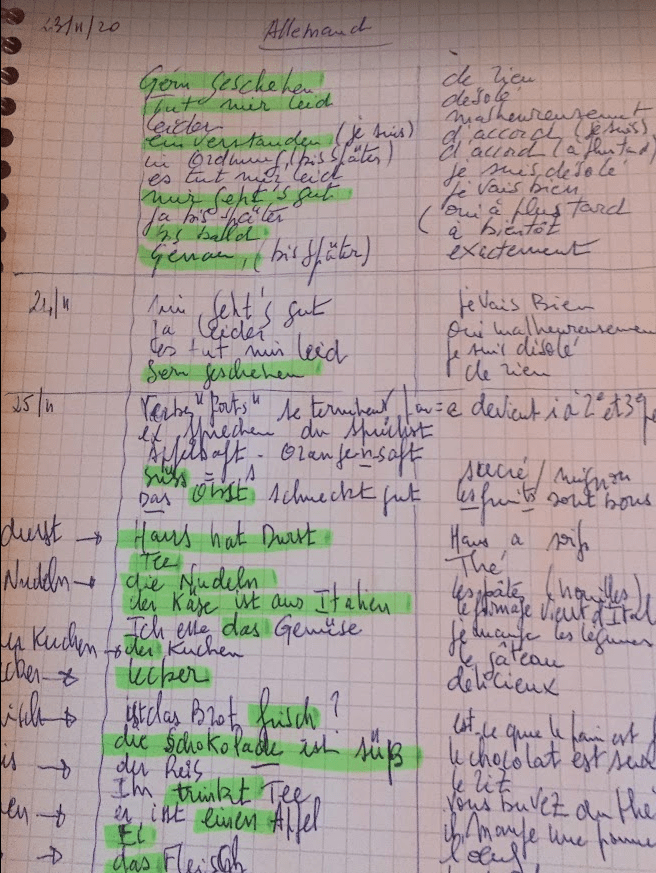 23/11/20 Allemand
Gern geschehen de rien
tut mir leid désolé
leider malheureusement
einverstanden (je suis) d'accord (je suis)
in Ordnung (bis später) d'accord (à plus tard)
es tut mir leid je suis désolé
mir geht's gut je vais bien
Ja bis später (oui à plus tard
bis bald à bientôt
Genau, (bis später) exactement
21/11 mir geht's gut je vais Bien
Ja leider oui malheureusemen
es tut mir leid je suis désolé
Gern geschehen de rien
25/11 Verbes "forts" se terminent e devient i à 2e et 3e
ex sprechen du sprichst
Apfelsaft - Orangensaft
süss = sucré / mignon
Das Obst schmeckt gut les fruits sont bons
durst → Hans hat Durst Hans a soif
Tee Thé
Nudeln → die Nudeln les pâtes (nouilles)
der Käse ist aus Italien le fromage vient d'Ital
Ich esse das Gemüse je mange les légumes
Kuchen → der Kuchen le gâteau
cker → lecker délicieux
isch → ist das Brot frisch ? est-ce que le pain est f
die Schokolade ist süß le chocolat est
is → der Reis le riz
Ihr trinkt Tee vous buvez du thé
en → er isst einen Apfel il mange une pomme
→ Ei l'oeuf
das Fleisch